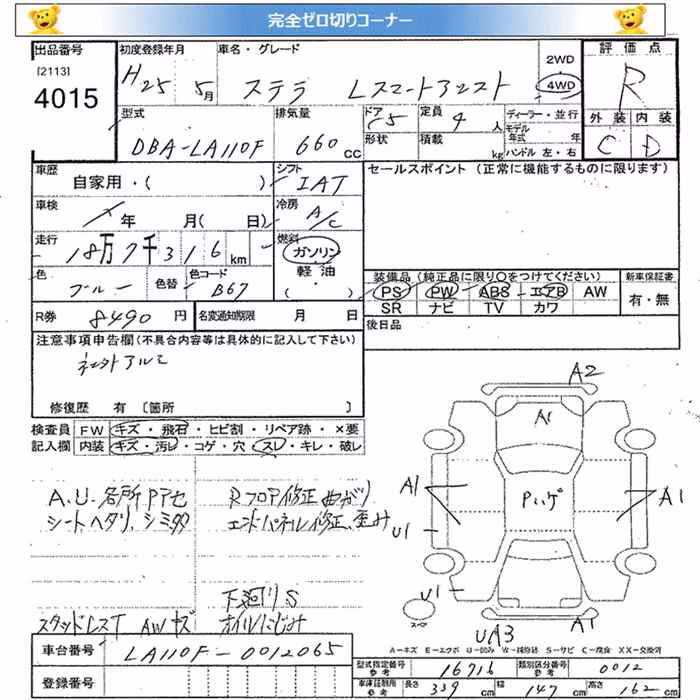 完全ゼロ切りコーナー
出品番号
[2113]
4015
初度登録年月
H25 5月
車名・グレード
ステラ Lスマートアシスト
2WD
4WD
評価点
R
型式
DBA-LA110F
排気量
660 cc
ドア 5
形状
定員 4 人
積載 kg
ディーラー・並行
モデル年式 年
ハンドル 左・右
外装 内装
C D
車歴
自家用・( )
シフト
IAT
セールスポイント (正常に機能するものに限ります)
車検
年 月( 日)
冷房
A/C
走行
18万7千316km
燃料
ガソリン
軽油
・( )
色
ブルー
色替
色コード
B67
装備品 (純正品に限り○をつけてください)
新車保証書
PS PW ABS エアB AW
SR ナビ TV カワ
有・無
R券 8490円
名変通知期限 月 日
後日品
注意事項申告欄(不具合内容等は具体的に記入して下さい)
社外アルミ
修復歴 有 〔箇所 〕
検査員 FW キズ・飛石・ヒビ割・リペア跡・×要
記入欄 内装 キズ・汚レ・コゲ・穴・スレ・キレ・破レ
A2
A1
A1 A1
U1
U1
UA3 A1
A.U.各所Pアセ
シートヘタリ、シミダダ
Rフロア修正曲がり
エンドパネル修正、歪み
下廻りS
スタッドレスT AWキズ
オイルにじみ
スペア
A-キズ E-エクボ U-凹み W-補修跡 S-サビ C-腐食 XX-交換済
車台番号 LA110F-0012065
登録番号
型式指定番号 参考 16716
類別区分番号 参考 0012
車庫証明用 参考 長さ 339 cm 幅 147 cm 高さ 162 cm